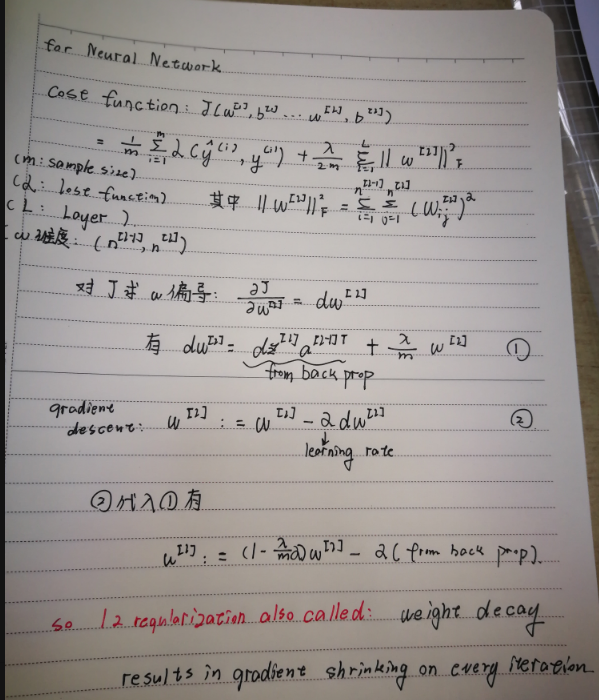 for Neural Network
Cose function: J(w^[1], b^[1] ... w^[L], b^[L])
= 1/m Σ_{i=1}^{m} L(ŷ^(i), y^(i)) + λ/2m Σ_{l=1}^{L} ||w^[l]||²_F
(m: sample size)
(L: lose function) 其中 ||w^[l]||²_F = Σ_{i=1}^{n^[l-1]} Σ_{j=1}^{n^[l]} (W_ij^[l])²
( L: Layer )
(w 维度: (n^[l-1], n^[l])
对 J 求 w 偏导: ∂J/∂w^[l] = dw^[l]
有 dw^[l] = dz^[l] a^[l-1]T + λ/m w^[l] ①
from back prop
gradient
descent: w^[l] := w^[l] - α dw^[l] ②
learning rate
②代入①有
w^[l] := (1 - λ/m α) w^[l] - α( from back prop).
so l2 regularization also called: weight decay
results in gradient shrinking on every iteration